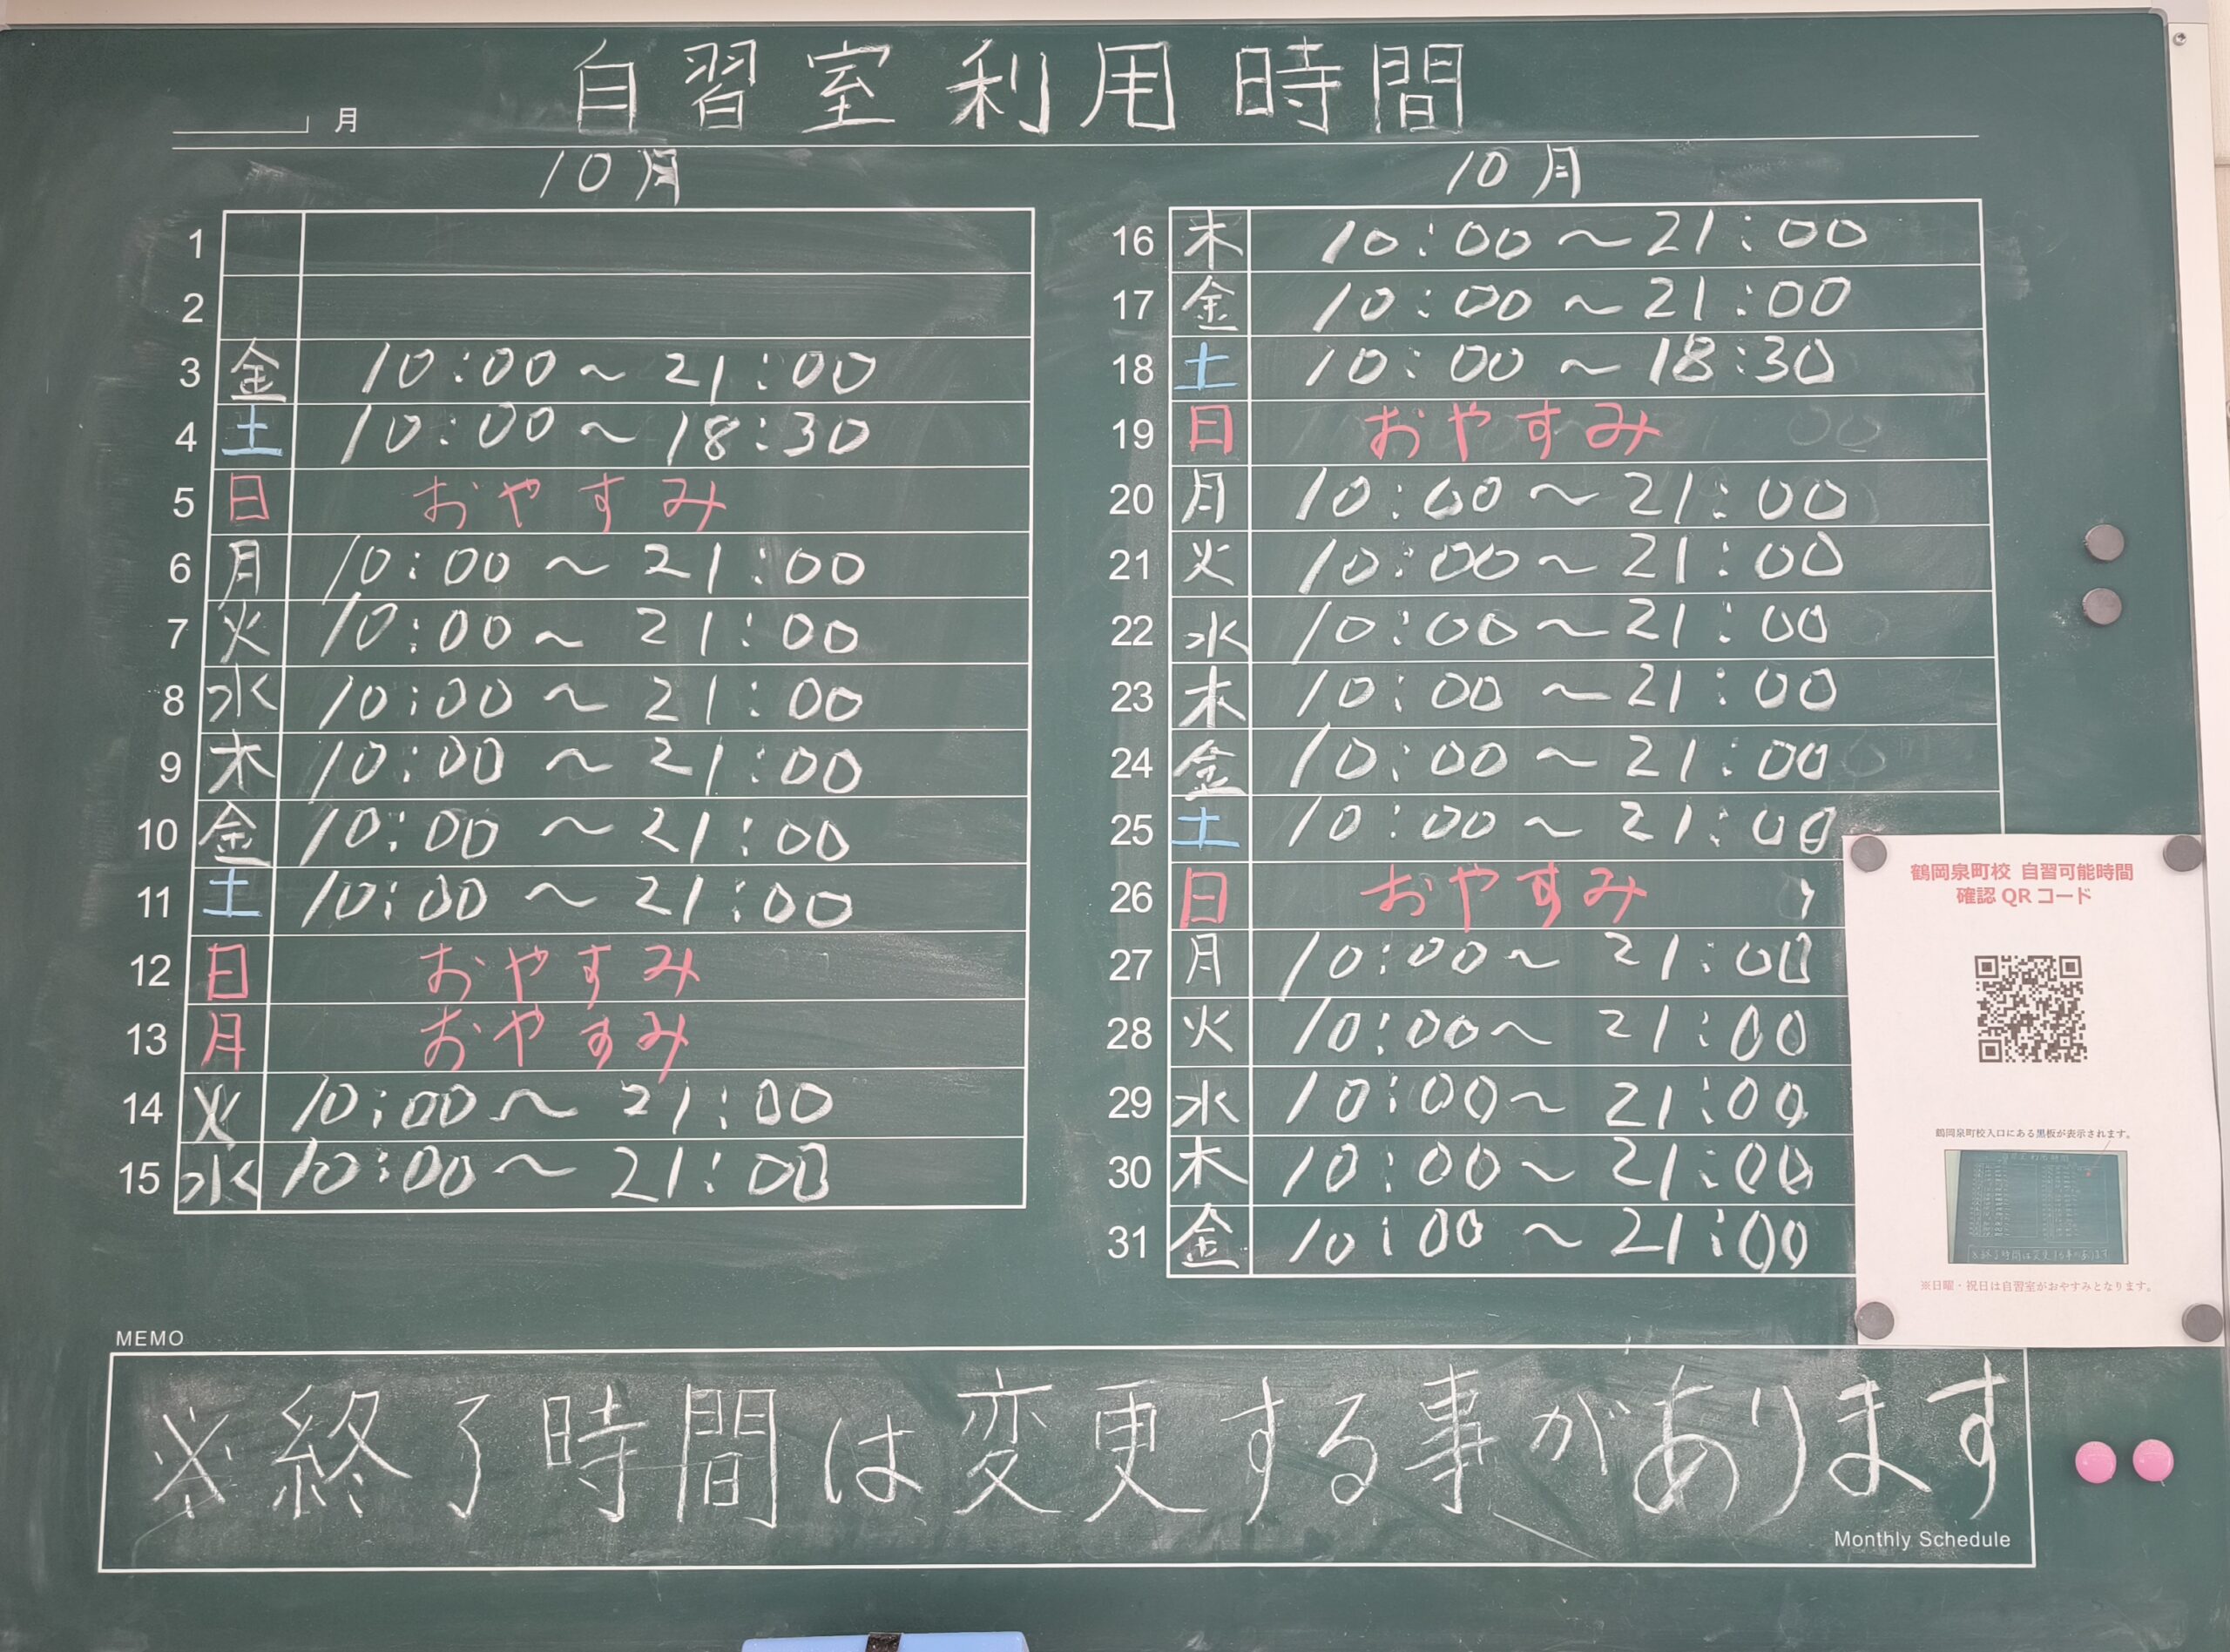 自習室利用時間
月
10月
1
2
3 金 10:00～21:00
4 土 10:00～18:30
5 日 おやすみ
6 月 10:00～21:00
7 火 10:00～21:00
8 水 10:00～21:00
9 木 10:00～21:00
10 金 10:00～21:00
11 土 10:00～21:00
12 日 おやすみ
13 月 おやすみ
14 火 10:00～21:00
15 水 10:00～21:00
10月
16 木 10:00～21:00
17 金 10:00～21:00
18 土 10:00～18:30
19 日 おやすみ
20 月 10:00～21:00
21 火 10:00～21:00
22 水 10:00～21:00
23 木 10:00～21:00
24 金 10:00～21:00
25 土 10:00～21:00
26 日 おやすみ
27 月 10:00～21:00
28 火 10:00～21:00
29 水 10:00～21:00
30 木 10:00～21:00
31 金 10:00～21:00
鶴岡泉町校 自習可能時間
確認QRコード
鶴岡泉町校入口にある黒板が表示されます。
※日曜・祝日は自習室がおやすみとなります。
MEMO
※終了時間は変更する事があります
Monthly Schedule